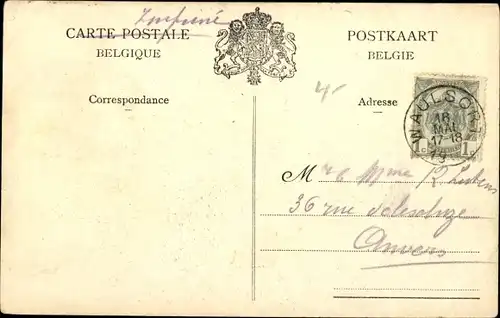 Imprimé
CARTE POSTALE
BELGIQUE
POSTKAART
BELGIE
Correspondance
Adresse
WAULSORT
16
MAI
17-18
1c 1c
M
36 rue
Anvers